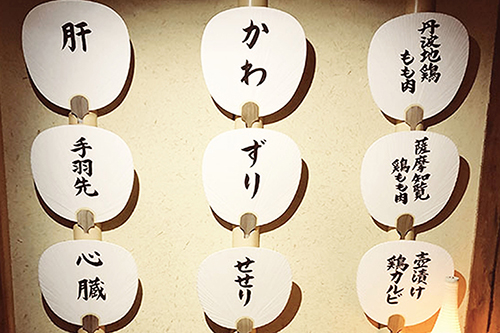 丹波地鶏
もも肉
薩摩知覧
鶏もも肉
壺漬け
鶏カルビ
かわ
ずり
せせり
肝
手羽先
心臓